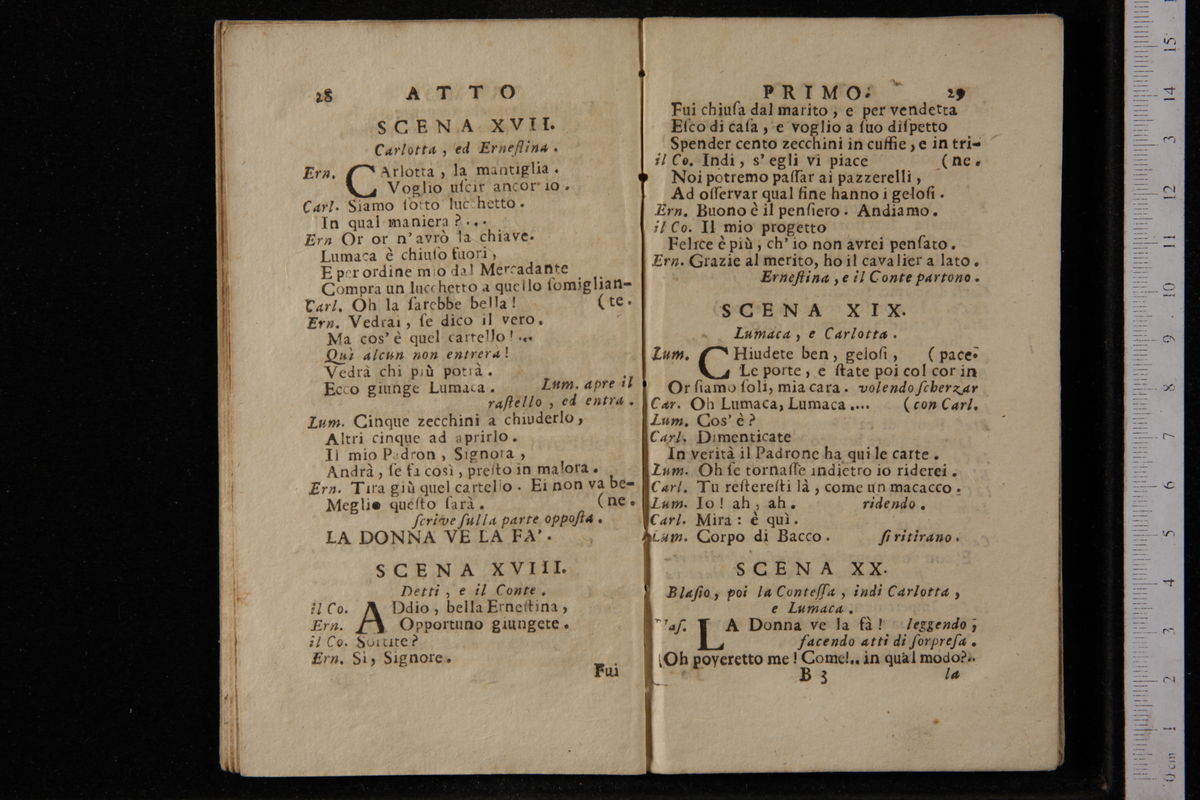 28 ATTO
SCENA XVII.
Carlotta, ed Erneſtina.
Ern. CArlotta, la mantiglia.
Voglio uſcir ancor io.
Carl. Siamo ſotto lucchetto.
In qual maniera?...
Ern Or or n'avrò la chiave.
Lumaca è chiuſo fuori,
E per ordine mio dal Mercadante
Compra un lucchetto a quello ſomiglian-
Carl. Oh la ſarebbe bella! (te.
Ern. Vedrai, ſe dico il vero.
Ma cos'è quel cartello!...
Quì alcun non entrerà!
Vedrà chi più potrà.
Ecco giunge Lumaca. Lum. apre il
raſtello, ed entra.
Lum. Cinque zecchini a chiuderlo,
Altri cinque ad aprirlo.
Il mio Padron, Signora,
Andrà, ſe fa così, preſto in malora.
Ern. Tira giù quel cartello. Ei non va be-
Meglio queſto ſarà. (ne.
ſcrive ſulla parte oppoſta.
LA DONNA VE LA FA'.
SCENA XVIII.
Detti, e il Conte.
il Co. ADdio, bella Erneſtina,
Ern. Opportuno giungete.
il Co. Sortite?
Ern. Sì, Signore.
Fui
PRIMO. 29
Fui chiuſa dal marito, e per vendetta
Eſco di caſa, e voglio a ſuo diſpetto
Spender cento zecchini in cuffie, e in tri-
il Co. Indi, s'egli vi piace (ne.
Noi potremo paſſar ai pazzerelli,
Ad oſſervar qual fine hanno i geloſi.
Ern. Buono è il penſiero. Andiamo.
il Co. Il mio progetto
Felice è più, ch'io non avrei penſato.
Ern. Grazie al merito, ho il cavalier a lato.
Erneſtina, e il Conte partono.
SCENA XIX.
Lumaca, e Carlotta.
Lum. CHiudete ben, geloſi, (pace.
Le porte, e ſtate poi col cor in
Or ſiamo ſoli, mia cara. volendo ſcherzar
Car. Oh Lumaca, Lumaca.... (con Carl.
Lum. Cos'è?
Carl. Dimenticate
In verità il Padrone ha qui le carte.
Lum. Oh ſe tornaſſe indietro io riderei.
Carl. Tu reſtereſti là, come un macacco.
Lum. Io! ah, ah. ridendo.
Carl. Mira: è quì.
Lum. Corpo di Bacco. ſi ritirano.
SCENA XX.
Blaſio, poi la Conteſſa, indi Carlotta,
e Lumaca.
Blaſ. LA Donna ve la fà! leggendo,
facendo atti di ſorpreſa.
Oh poveretto me! Come!.. in qual modo?..
B 3 la